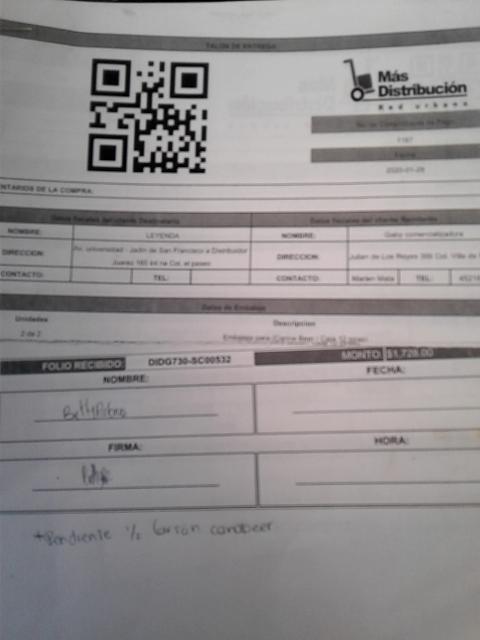 TALON DE ENTREGA
Más
Distribución
Red urbana
No. de Comprobante de Pago
1197
Fecha
2020-01-28
NTARIOS DE LA COMPRA:
Datos fiscales del cliente Destinatario
Datos fiscales del cliente Remitente
NOMBRE: LEYENDA
NOMBRE: Gabo comercializadora
DIRECCION: Av. universidad - Jadin de San Francisco a Distribuidor
Juarez 160 int na Col. el paseo
DIRECCIÓN: Julian de Los Reyes 399 Col. Villa de
CONTACTO: TEL:
CONTACTO: Marien Mata TEL:
Datos de Embalaje
Unidades Descripcion
2 de 2 Embalaje para (Carina Beer / Caja 12 piezas)
FOLIO RECIBIDO: DIDG730-SC00532 MONTO: $1,728.00
NOMBRE: FECHA:
FIRMA: HORA:
*Pendiente 1/2 cartón canabeer